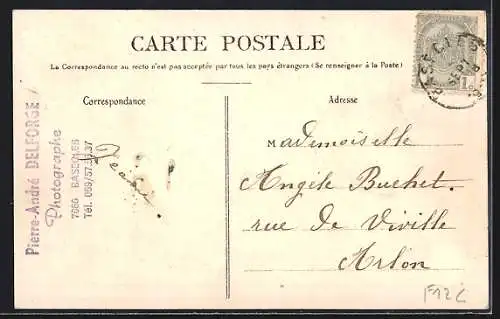 CARTE POSTALE
La Correspondance au recto n'est pas acceptée par tous les pays étrangers (Se renseigner à la Poste)
Correspondance
Adresse
Pierre-André DELFORGE
Photographe
7980 BASECLES
Tél. 069/57.53.37
Mademoiselle
Angèle Buchet.
rue de Viville
Arlon
F12€